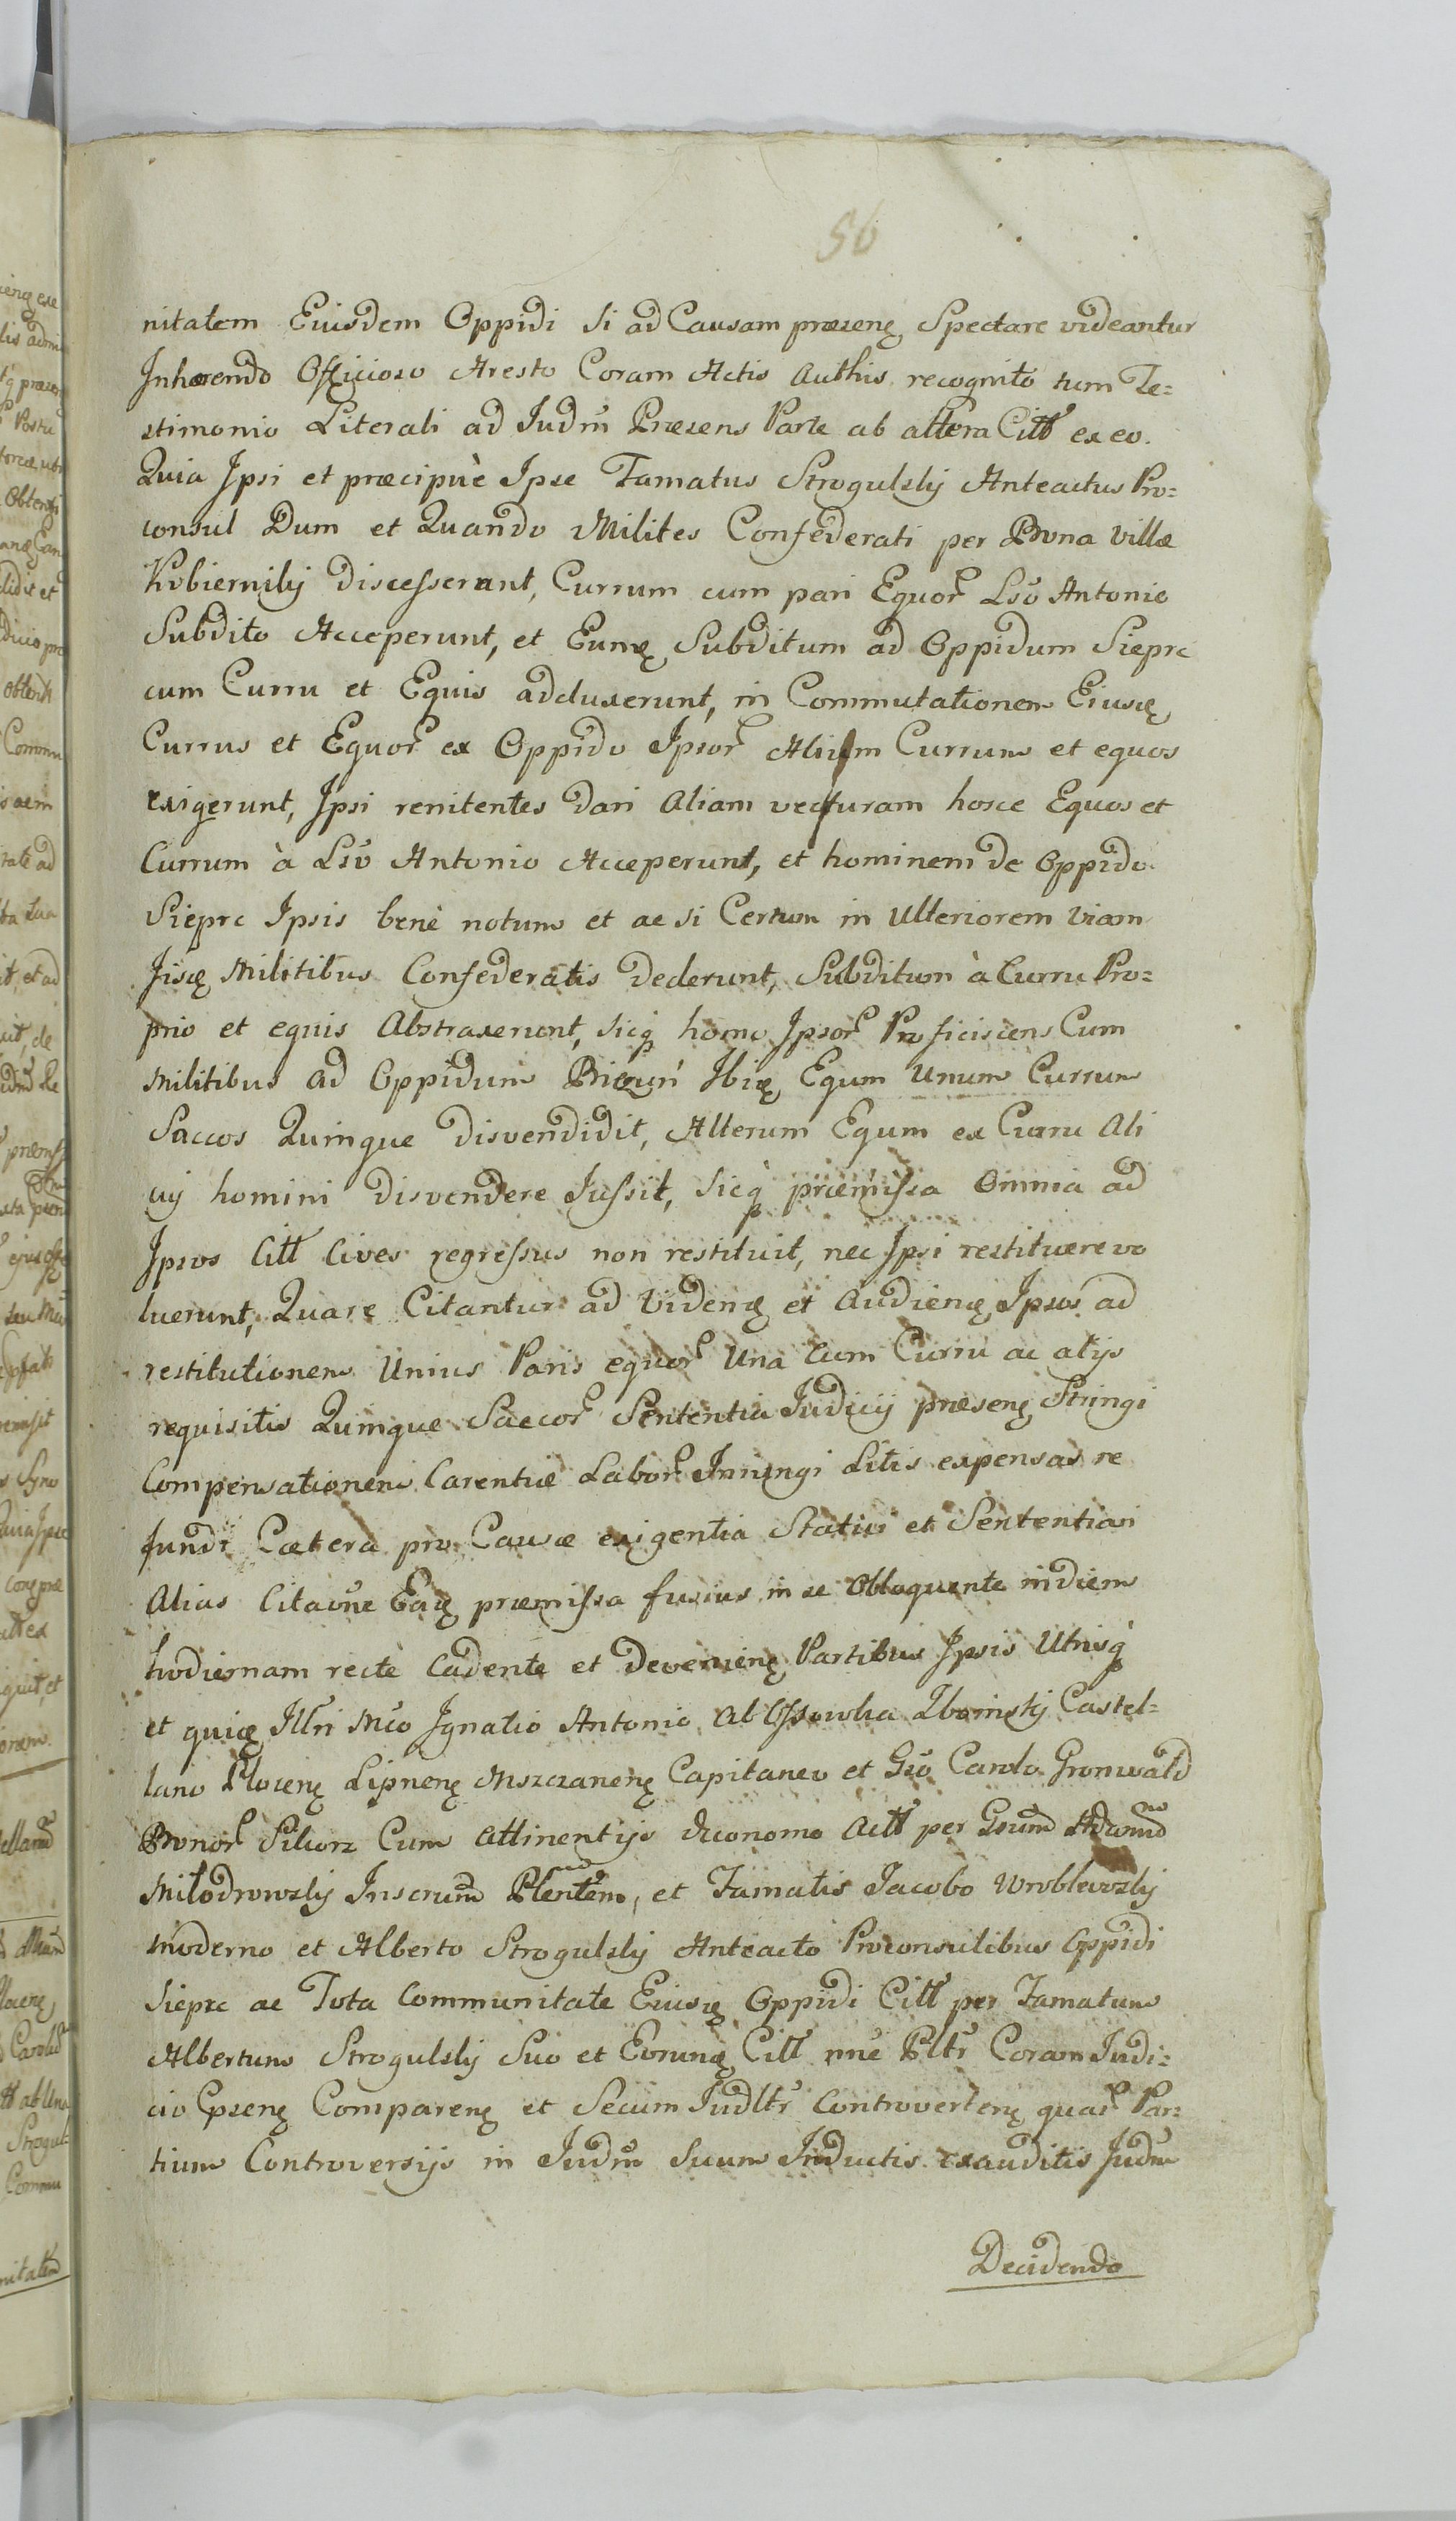 56
nitatem Eiusdem Oppidi si ad Causam præzenę Spectare videantur
Inhærendo Officioso Aresto Coram Actis Authis recognito tum Te=
stimonio Literali ad Judm̃ Præsens Parte ab altera Citt ex eo.
Quia Ipsi et præcipuè Ipse Famatus Strogulsky Anteactus Pro=
consul Dum et Quando Milites Confederati per Bona Villæ
Kobiernily discesserant, Currum cum pari Equor Lsõ Antonio
Subdito Acceperunt, et Eumę Subditum ad Oppidum Sieprc
cum Curru et Equis adduxerunt, in Commutationem Eiusę
Currus et Equor ex Oppido Ipsor Alium Currum et equos
exigerunt, Ipsi renitentes dari Aliam vecturam hosce Equos et
Currum à Lsõ Antonio Acceperunt, et hominem de Oppido
Sieprc Ipsis benè notum et ac si Certum in Ulteriorem Viam
Jisę Militibus Confederatis dederunt, Subditum à Curru Pro=
prio et equis Abstraxerunt, sicq homo Ipsor Proficiscens Cum
Militibus ad Oppidum Bieżuń Ibię Equm Unum Currum
Saccos Quinque disvendidit, Alterum Equm ex Curru Ali
cuj homini disvendere Jussit, sicq præmissa Omnia ad
Ipsos Citt Cives regressus non restituit, nec Ipsi restituere vo
luerunt, Quare Citantur ad Videnę et Audienę Ipsos ad
restitutionem Unius Paris equor Una cum Curru ac alijs
requisitis Quinque Saccor Sententia Judicij præsenę Stringi
Compensationem Carentiæ Labor Iniungi Litis expensas re
fundi Cætera pro Causæ exigentia Statui et Sententiari
Alias Citaõne Eaę præmissa fusius in se Obloquente in diem
hodiernam recte Cadente et Devenienę Partibus Ipsis Utrisq
et quię Illri Mco Ignatio Antonio Ab Ossowka Zboinsky Castel=
lano Plocenę Lipnenę Mszczanenę Capitaneo et Gsõ Carolo Gronwald
Bonor Siliorz Cum Attinentijs Œconomo Actt per Gsum
Milodrowsky Plentem, et Famatis Jacobo Wroblewsky
moderno et Alberto Strogulsky Anteacto Proconsulibus Oppidi
Sieprc ac Tota Communitate Eiusę Oppidi Citt per Famatum
Albertum Strogulsky Suo et Eorumę Citt nñe Pltr Coram Judi=
cio Comparenę et Secum Judltr Controvertenę quar Par=
tium Controversijs in Judm̃ Suum Inductis exauditis Judm̃
Decidendo